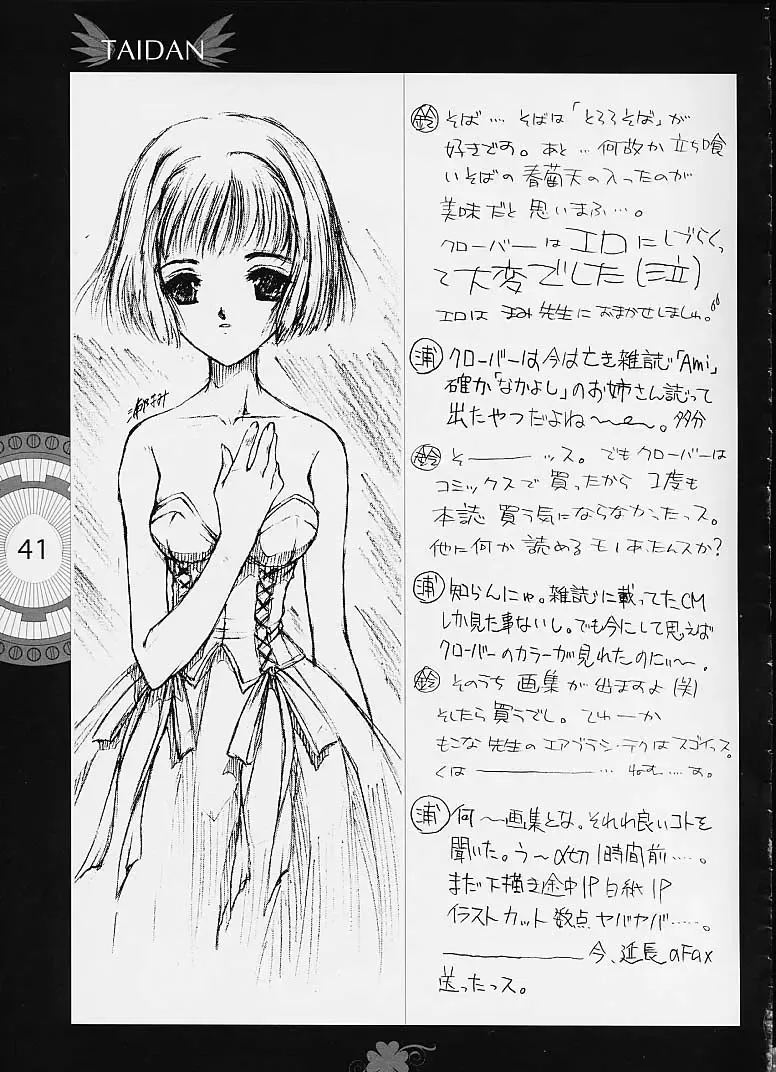 TAIDAN
鈴 そば… そばは「とろろそば」が
好きです。あと…何故か立ち喰
いそばの春菊天の入ったのが
美味だと思いまふ…。
クローバーはエロにしづらくっ
て大変でした(泣)
エロは まみ先生におまかせしましゅ。
浦 クローバーは今は亡き雑誌「Ami」
確か「なかよし」のお姉さん誌って
出たやつだよね〜〜。多分
鈴 そ———ッス。でもクローバーは
コミックスで買ったから 1度も
本誌買う気にならなかったっス。
他に何か読めるモノあたんスか?
浦 知らんにゅ。雑誌に載ってたCM
しか見た事ないし。でも今にして思えば
クローバーのカラーが見れたのにぃ〜。
鈴 そのうち画集が出ますよ(笑)
そしたら買うでし。てゅーか
もこな先生のエアブラシ・テクはスゴイっス。
くは————… ねむ…。す。
浦 何〜画集とな。それわ良いコトを
聞いた。う〜〆切1時間前…。
まだ下描き途中1P白紙1P
イラストカット数点ヤバヤバ…。
————今、延長のFax
送ったっス。
41